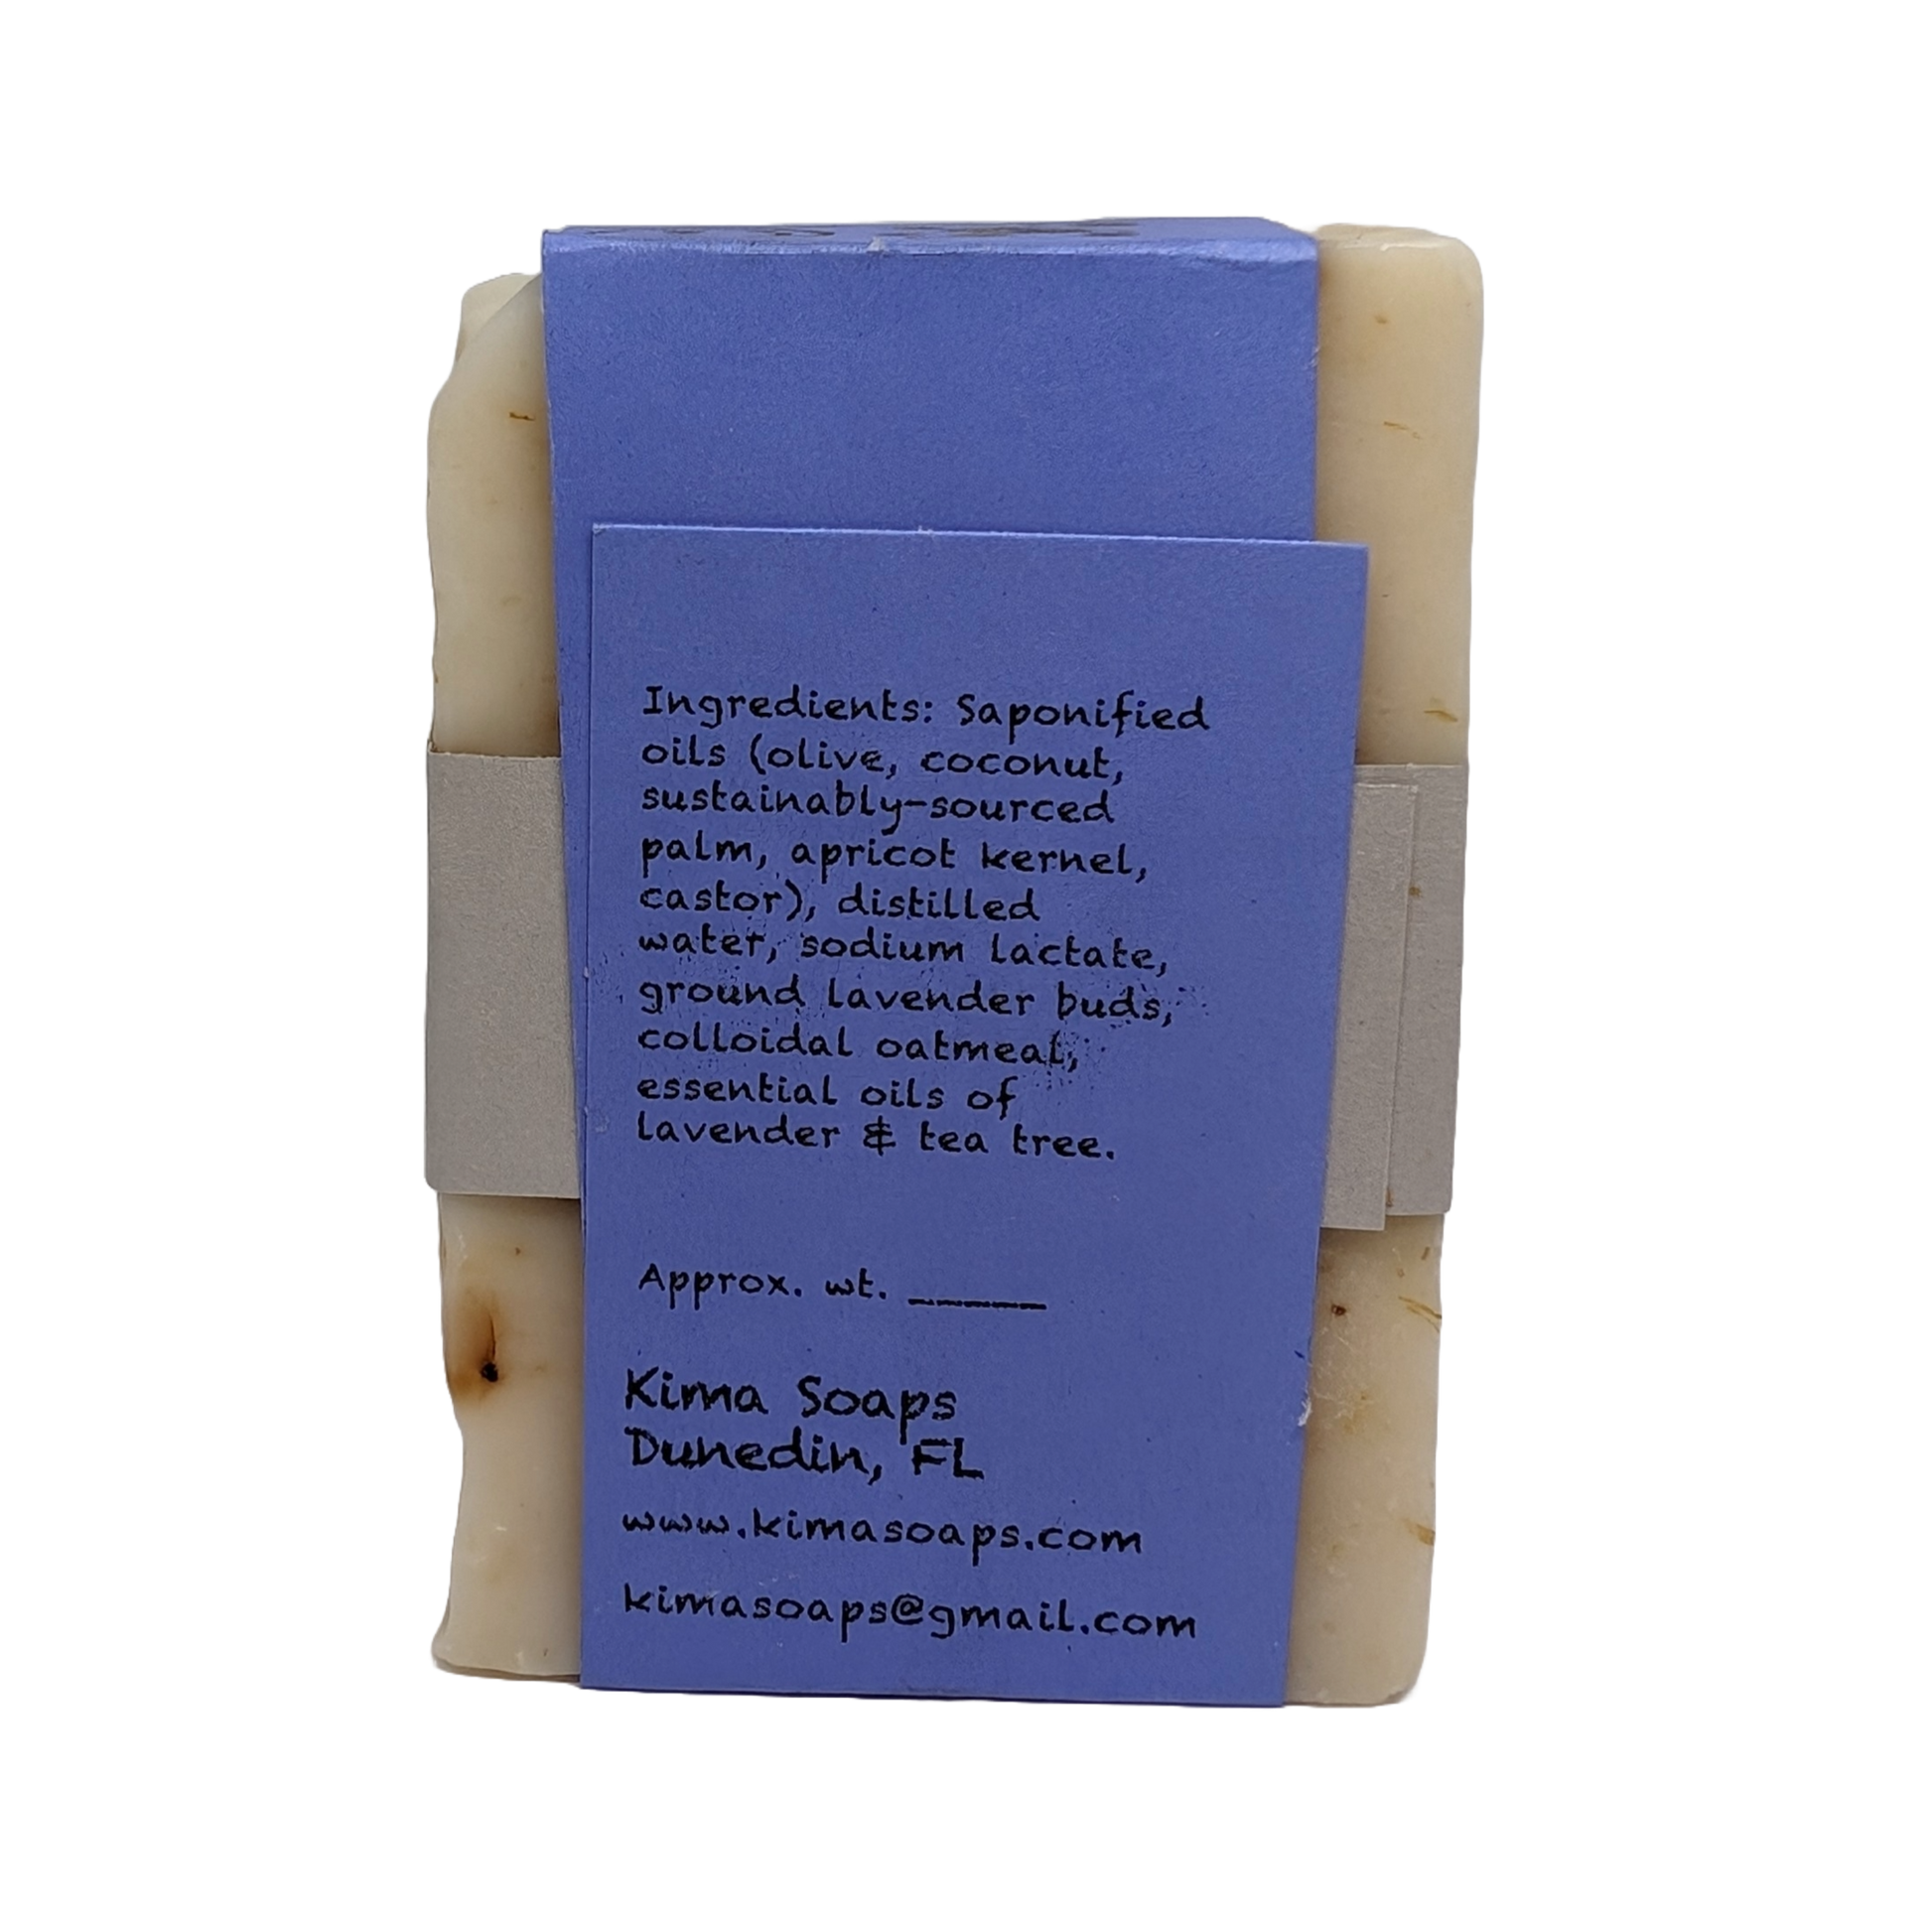 Ingredients: Saponified
oils (olive, coconut,
sustainably-sourced
palm, apricot kernel,
castor), distilled
water, sodium lactate,
ground lavender buds,
colloidal oatmeal,
essential oils of
lavender & tea tree.
Approx. wt. ______
Kima Soaps
Dunedin, FL
www.kimasoaps.com
kimasoaps@gmail.com